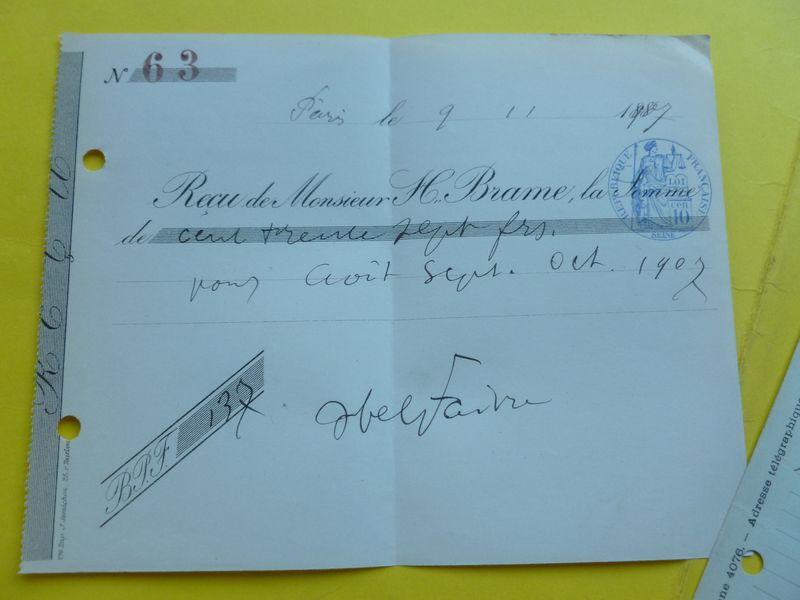 N 63
Paris le 9 11 1907
Reçu de Monsieur H. Brame, la Somme
RÉPUBLIQUE FRANÇAISE
LOI
10
SEINE
de cent trente sept frs.
pour Août Sept. Oct. 1907
B.P.F. 137
Abel Faivre
REÇU
ne 4076. — Adresse télégraphique